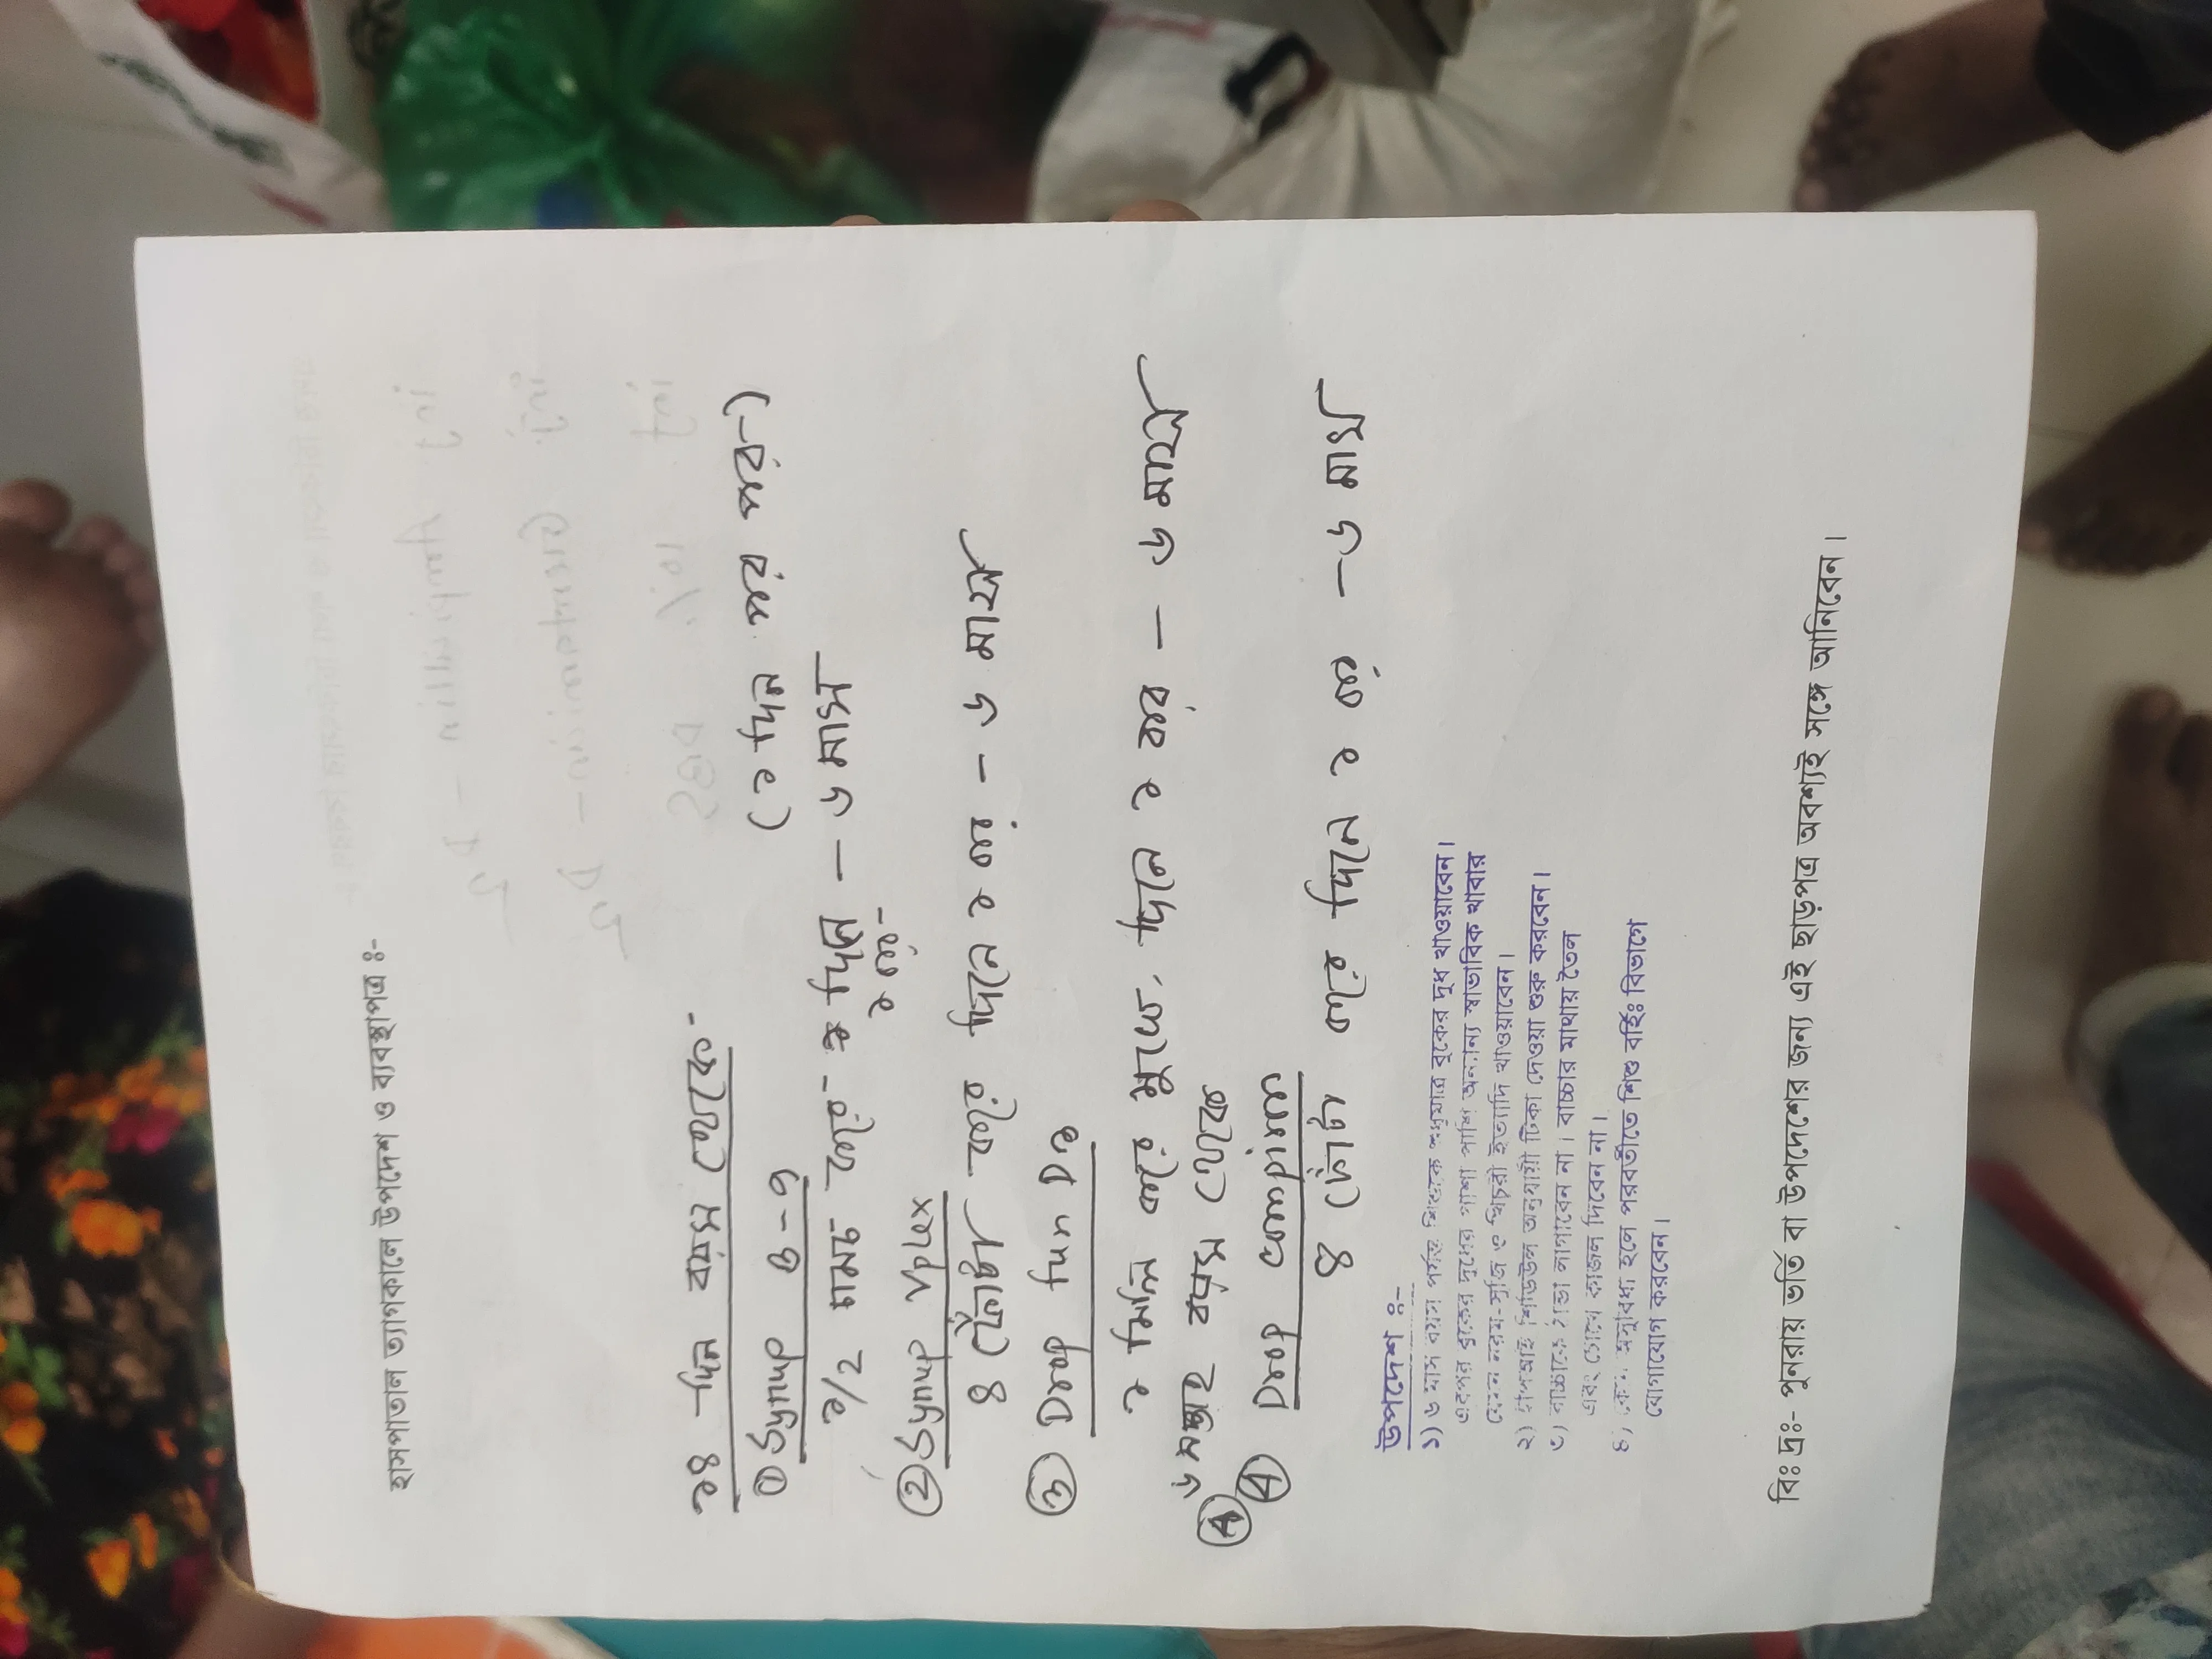 হাসপাতাল ত্যাগকালে উপদেশ ও ব্যবস্থাপত্র ঃ-
১৪ দিন বয়স থেকে-
① Syrup B-9 (২ দিন পর পর)
১/2 চামচ করে- দিনে - ৬ মাস
২ বার-
② Syrup Vplex
৪ ফোঁটা করে দিনে ২ বার - ৬ মাস
③ Drop D3
১ মিলি করে মুখে, দিনে ২ বার - ৬ মাস
৬ সপ্তাহ বয়স থেকে
④ Drop
৪ ফোঁটা করে দিনে ২ বার - ৬ মাস
উপদেশ ঃ-
১) ৬ মাস বয়স পর্যন্ত শিশুকে শুধুমাত্র বুকের দুধ খাওয়াবেন।
এরপর বুকের দুধের পাশা পাশি অন্যান্য স্বাভাবিক খাবার
যেমন নরম-সুজি ও খিচুরী ইত্যাদি খাওয়াবেন।
২) ইপিআই শিডিউল অনুযায়ী টিকা দেওয়া শুরু করবেন।
৩) বাচ্চাকে ঠান্ডা লাগাবেন না। বাচ্চার মাথায় তৈল
এবং চোখে কাজল দিবেন না।
৪) কোন অসুবিধা হলে পরবর্তীতে শিশু বর্হিঃ বিভাগে
যোগাযোগ করবেন।
বিঃ দ্রঃ- পুনরায় ভর্তি বা উপদেশের জন্য এই ছাড়পত্র অবশ্যই সঙ্গে আনিবেন।